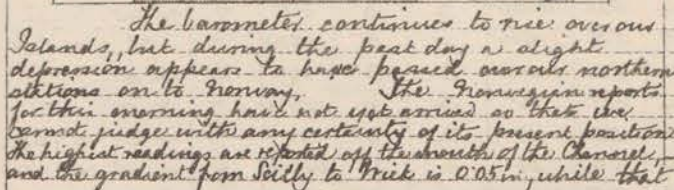 The barometer continues to rise over our
Islands, but during the past day a slight
depression appears to have passed over our northern
stations on to Norway. The Norwegian reports
for this morning have not yet arrived so that we
cannot judge with any certainty of its present position
The highest readings are reported off the mouth of the Channel,
and the gradient from Scilly to Wick is 0.05 in, while that